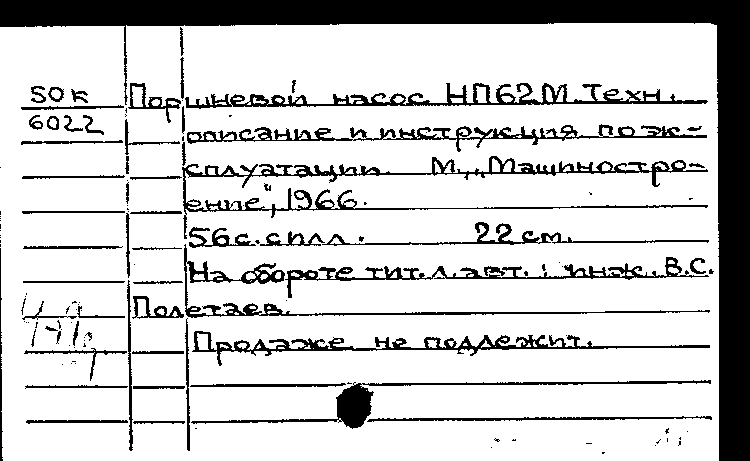 50к Поршневой насос НП62М. Техн.
6022 описание и инструкция по эк-
сплуатации. М., „Машиностро-
ение", 1966.
56 с. с илл. 22 см.
На обороте тит. л. авт.: инж. В.С.
Полетаев.
Продаже не подлежит.